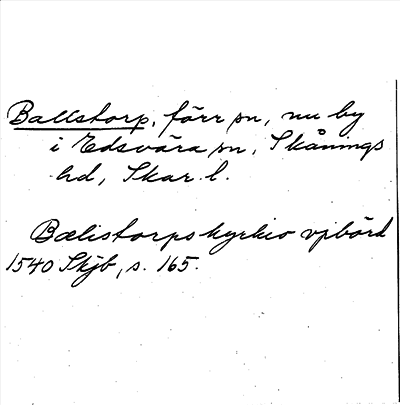 Ballstorp, förr sn, nu by
i Edsvära sn, Skånings
hd, Skar. l.
Bælistorps kyrkio vpbörd
1540 Skjb, s. 165.